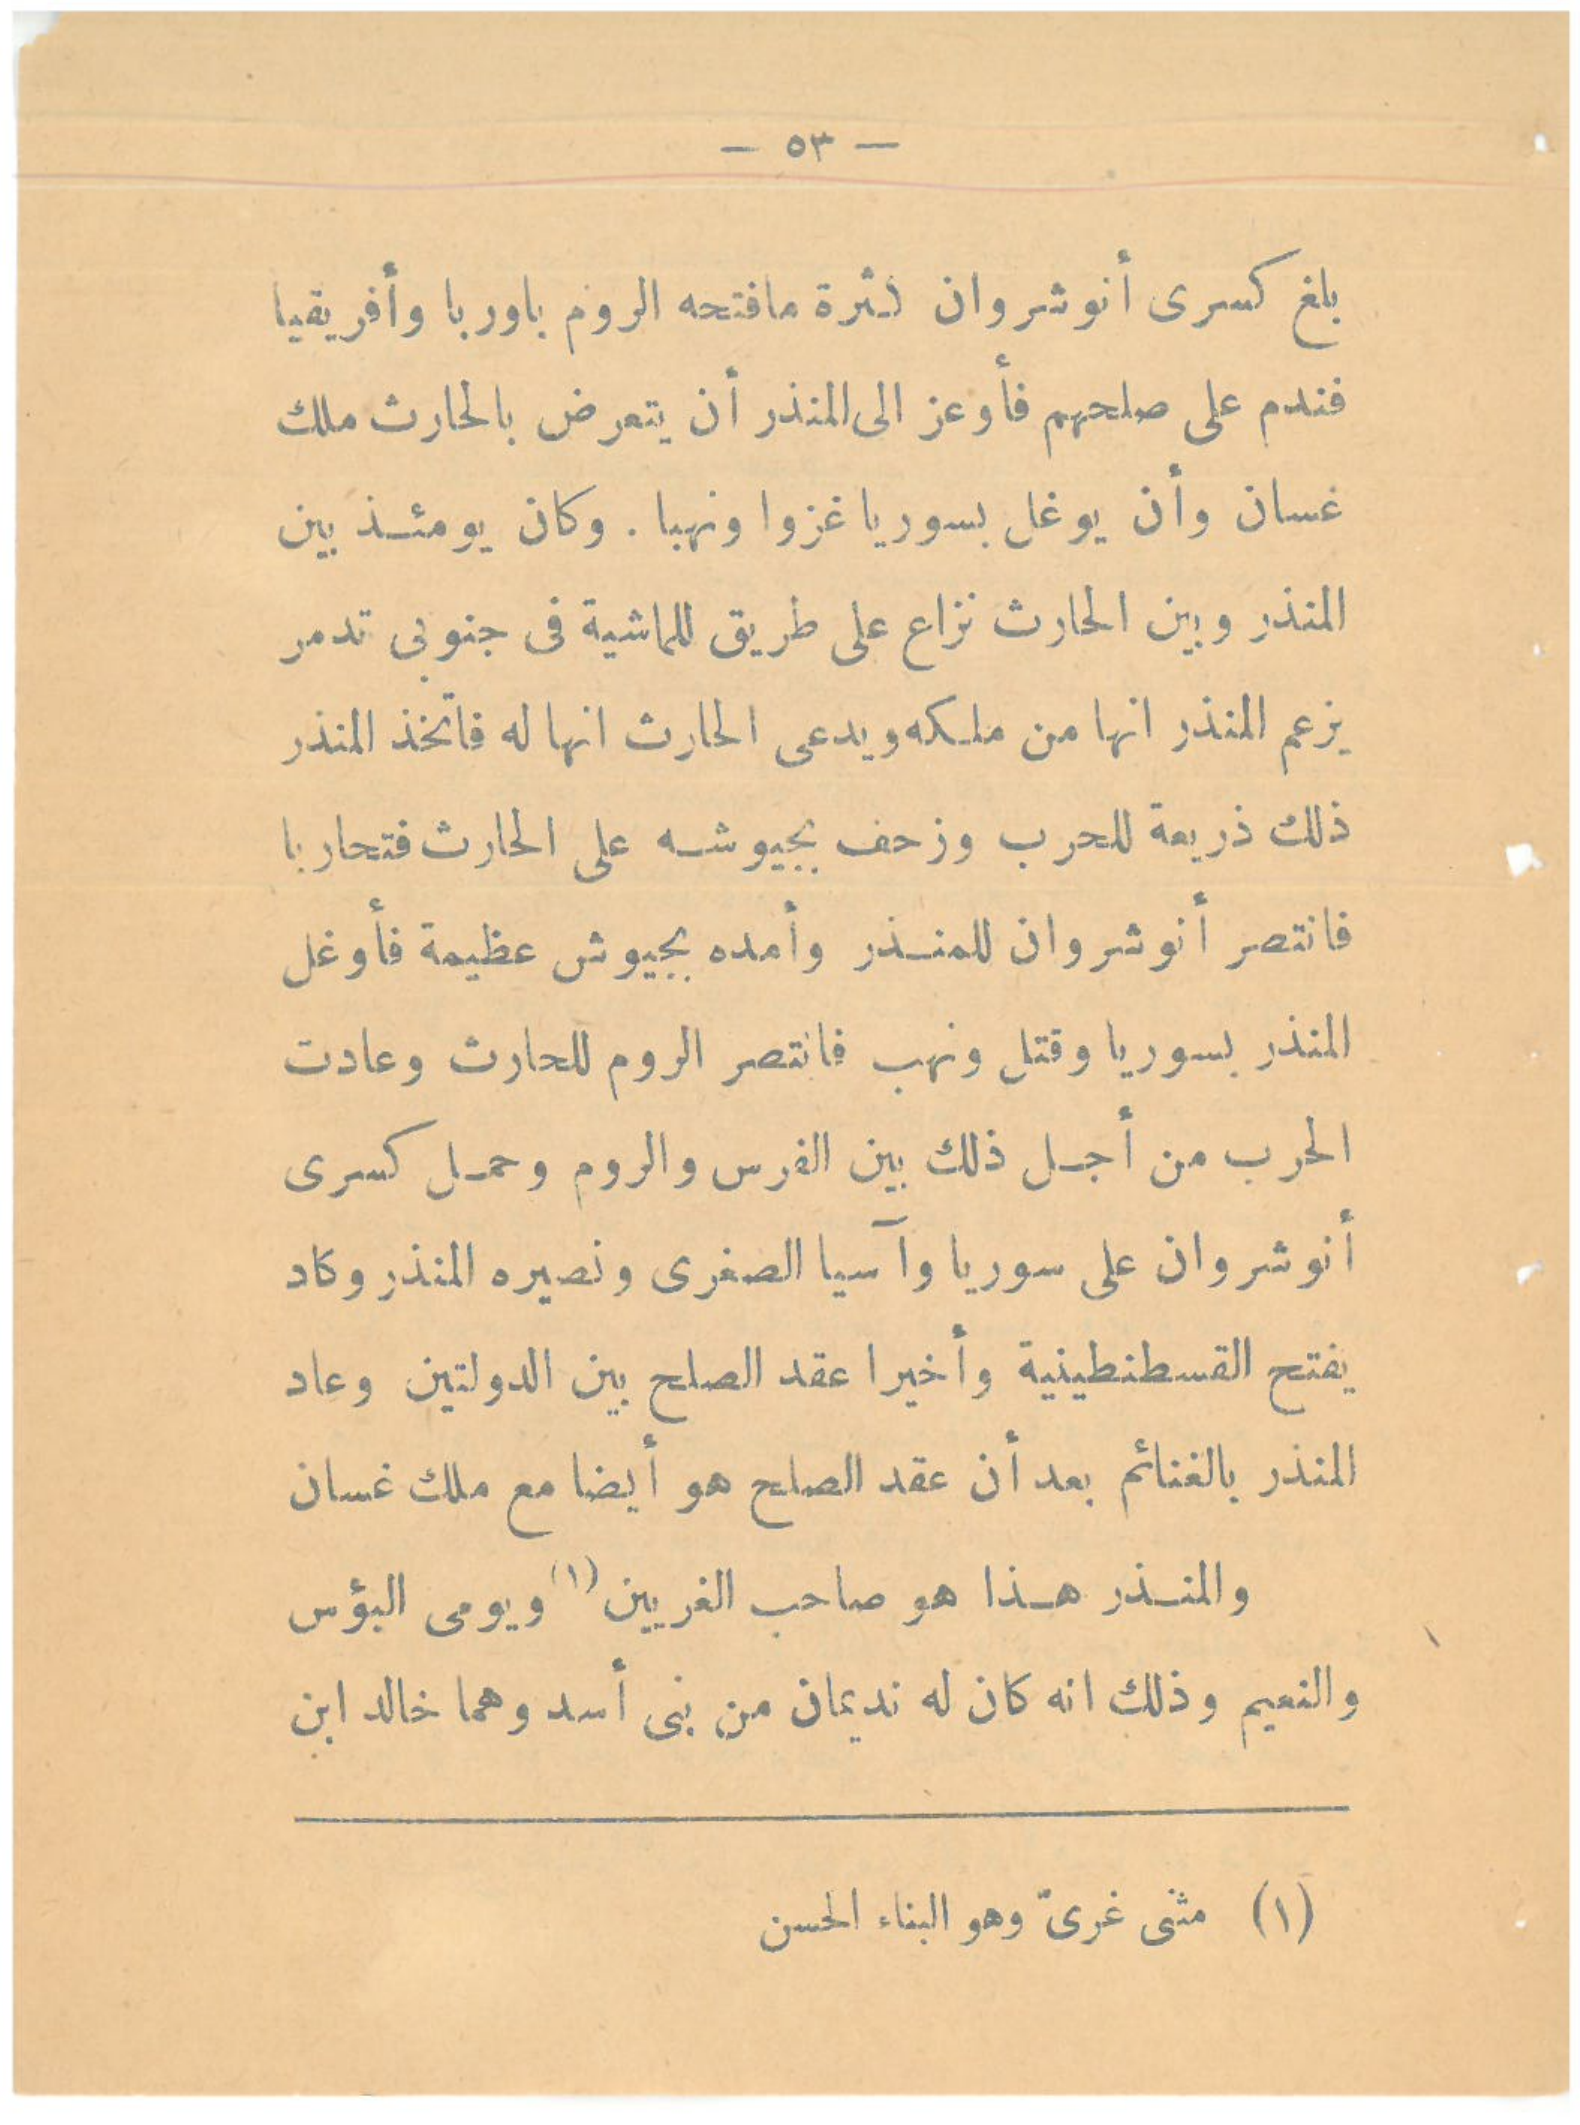 — ٥٣ —
بلغ كسرى أنوشروان كثرة مافتحه الروم باوربا وأفريقيا
فندم على صلحهم فأوعز الى المنذر أن يتعرض بالحارث ملك
غسان وأن يوغل بسوريا غزوا ونهبا . وكان يومئذ بين
المنذر وبين الحارث نزاع على طريق للماشية فى جنوبى تدمر
يزعم المنذر انها من ملكه ويدعى الحارث انها له فاتخذ المنذر
ذلك ذريعة للحرب وزحف بجيوشه على الحارث فتحاربا
فانتصر أنوشروان للمنذر وأمده بجيوش عظيمة فأوغل
المنذر بسوريا وقتل ونهب فانتصر الروم للحارث وعادت
الحرب من أجل ذلك بين الفرس والروم وحمل كسرى
أنوشروان على سوريا وآسيا الصغرى ونصيره المنذر وكاد
يفتح القسطنطينية وأخيرا عقد الصلح بين الدولتين وعاد
المنذر بالغنائم بعد أن عقد الصلح هو أيضا مع ملك غسان
والمنذر هذا هو صاحب الغريين (١) ويومى البؤس
والنعيم وذلك انه كان له نديمان من بنى أسد وهما خالد ابن
(١) مثنى غرىّ وهو البناء الحسن